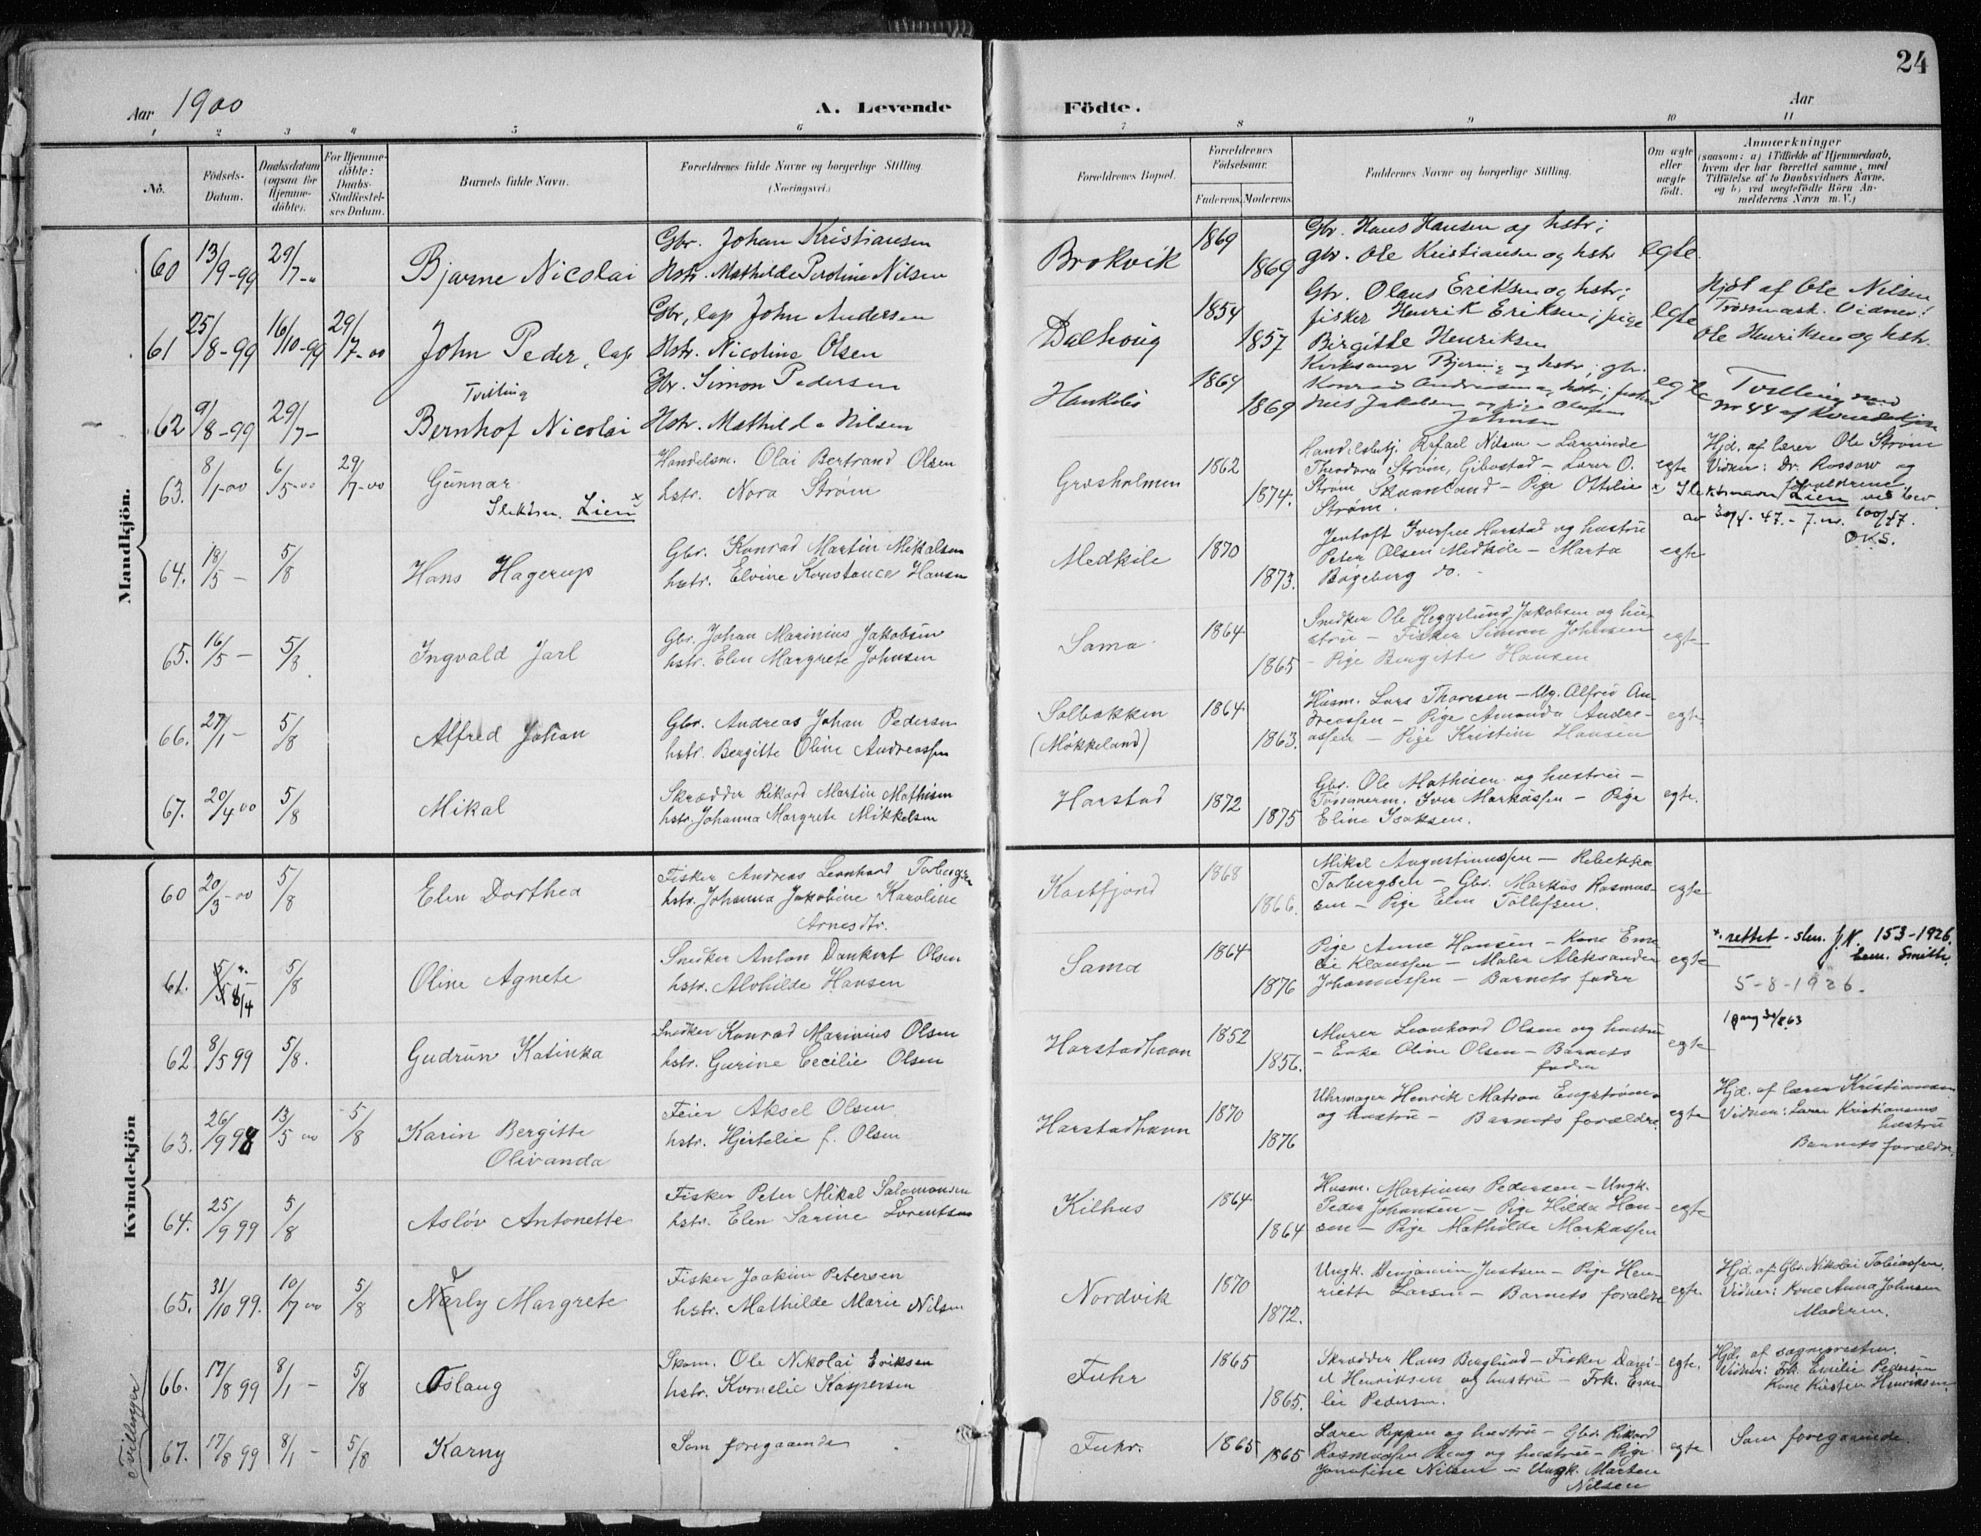 24
Aar 1900
A. Levende
Födte.
Aar
1 2 3 4 5 6 7 8 9 10 11
No.
Födsels-Datum.
Daabsdatum (ogsaa for Hjemme-döbte).
For Hjemme-döbte: Daabs-Stadfæstel-ses Datum.
Barnets fulde Navn.
Forældrenes fulde Navne og borgerlige Stilling.
(Næringsvei.)
Forældrenes Bopæl.
Forældrenes Födselsaar.
Faderens. Moderens.
Faddernes Navne og borgerlige Stilling.
Om ægte eller uægte födt.
Anmærkninger
(saasom: a) i Tilfælde af Hjemmedaab,
hvem der har forrettet samme, med
Tilföielse af to Daabsvidners Navne,
og b) ved uægtefödte Börn An-
melderens Navn m. V.)
Mandkjön.
60 13/9-99 29/7-" Bjarne Nicolai
Gbr. Johan Kristiansen
Hstr. Mathilde Perdine Nilsen
Brokvik 1869 1869
Gbr. Hans Hansen og hstr;
gbr. Ole Kristiansen og hstr
egte
61 25/8-99 16/10-99 29/7-00 John Peder, lap
Gbr, lap John Andersen
Hstr. Nicoline Olsen
Dalhoug 1854 1857
Gbr. Olaus Eriksen og hstr;
fisker Henrik Eriksen; pige
Birgitte Henriksen
egte
Hjdt af Ole Nilsen
Trøssmark. Vidner:
Ole Henriksen og hstr.
Tvilling
62 9/8-99 29/7- Bernhof Nicolai
Gbr. Simon Pedersen
Hstr. Mathilda Nilsen
1864 1869
Kirksanger Bjerring og hstr; gbr.
Konrad Andreasen og hstr; fisker
Nils Jakobsen og pige
Johnsen
egte
Tvilling med
Nr 44 af Kvindekjøn
63. 8/1-00 6/5-00 29/7-00 Gunnar
Slektsn. Lien x
Handelsm. Olai Bertrand Olsen
hstr. Nora Strøm
Græsholmen 1862 1874.
Handelsbetj. Rafael Nilsen – Lærerinde
Theodora Strøm, Gibostad – Lærer O.
Strøm, Skaanland – Pige Ottilie
Strøm.
egte
Hjd. af lærer Ole Strøm
Vidner: Dr. Rossow og
forældrene.
x Slektsnavn Lien ved bev.
av 30/4-47. – j.nr. 100/47.
O.K.S.
64. 18/5 – 5/8 Hans Hagerup
Gbr. Konrad Martin Mikalsen
hstr. Elvine Konstance Hansen
Medkile 1870 1873.
Jentoft Iversen Harstad og hustru
Peter Olsen Medkile – Marta
Bageberg do. –
egte
65. 16/5 – 5/8. Ingvald Jarl
Gbr. Johan Marinius Jakobsen
hstr. Elen Margrete Johnsen
Sama 1864 1865
Snedker Ole Heggelund Jakobsen og hu-
stru – Fisker Simon Johnsen
– Pige Bergitte Hansen
egte
66. 27/1 – 5/8 Alfred Johan
Gbr. Andreas Johan Pedersen
hstr. Bergitte Oline Andreassen
Solbakken
(Møkkeland) 1864 1863.
Husm. Lars Thoresen – Ug. Alfred An-
dreassen – Pige Amanda Andre-
assen – Pige Kristine Hansen
egte
67. 20/4 00 5/8 Mikal
Skrædder Rikard Martin Mathisen
hstr. Johanna Margrete Mikkelsen
Harstad 1872 1875
Gbr. Ole Mathisen og hustru –
Tømmerm. Iver Markussen – Pige
Eline Isaksen.
egte.
Kvindekjön
60 20/3-00 5/8 Elen Dorthea
Fisker Andreas Leonhard Torbergsen
hstr. Johanna Jakobine Karoline
Arnesdtr.
Kastfjord 1868 1866.
Mikal Augustinussen – Rebekka
Torbergsen – Gbr. Markus Rasmus-
sen – Pige Elen Tollefsen.
egte
61. 5/5 x 8/4 5/8 Oline Agnete
Snedker Anton Dankert Olsen
hstr. Alvhilde Hansen
Sama 1864 1876
Pige Anne Hansen – Kone Emi-
lie Klaussen – Maler Aleksander
Johannessen – Barnets fader
egte
x. rettet – skr. J.N. 153-1926.
Em. Smith.
5-8-1926.
62. 8/5 99 5/8. Gudrun Katinka
Snedker Konrad Marinius Olsen
hstr. Gurine Cecilie Olsen
Harstadhavn 1852 1856.
Murer Leonhard Olsen og hustru
– Enke Oline Olsen – Barnets
fader
egte
63. 26/9 98 13/5 00 5/8 Karin Bergitte
Olivanda
Feier Aksel Olsen
hstr. Hjertelie f. Olsen
Harstadhavn 1870 1876
Uhrmager Henrik Matson Engstrøm
og hustru – Barnets forældre.
egte
Hjd. af lærer Kristiansen
Vidner: Lærer Kristiansens
hustru
Barnets forældre.
64. 25/9 99 5/8 Asløv Antonette
Fisker Peter Mikal Salomonsen
hstr. Elen Sarine Lorentsen
Kilhus 1864 1864
Husm. Martinus Pedersen – Ungk.
Peder Johansen – Pige Hilda Han-
sen – Pige Mathilde Markussen
egte
65. 31/10 99. 10/7 00 5/8 Nærly Margrete
Fisker Joakim Petersen
hstr. Mathilde Marie Nilsen
Nordvik 1870 1872.
Ungk. Benjamin Justsen – Pige Hen-
riette Larsen – Barnets forældre
egte.
Hjd. af Gbr. Nikolai Tobiassen.
Vidner: Kone Anna Johnsen
Moderen.
Tvillinger
66. 17/8 99 8/1 – 5/8 Aslaug
Skom. Ole Nikolai Eriksen
hstr. Kornelie Kaspersen
Fuhr 1865 1865.
Skrædder Hans Berglund – Fisker Dani-
el Henriksen og hustru – Frk. Emi-
lie Pedersen.
egte.
Hjd. af sognepresten.
Vidner: Frk. Emilie Pedersen
Kone Kirsten Henriksen.
67. 17/8 99 8/1 – 5/8 Karny
Som foregaaende
Fuhr. 1865 1865
Lærer Reppen og hustru – Gbr. Rikard
Rasmussen Berg og hustru – Pige
Josefine Nilsen – Ungk. Morten
Nilsen
egte
Som foregaaende.